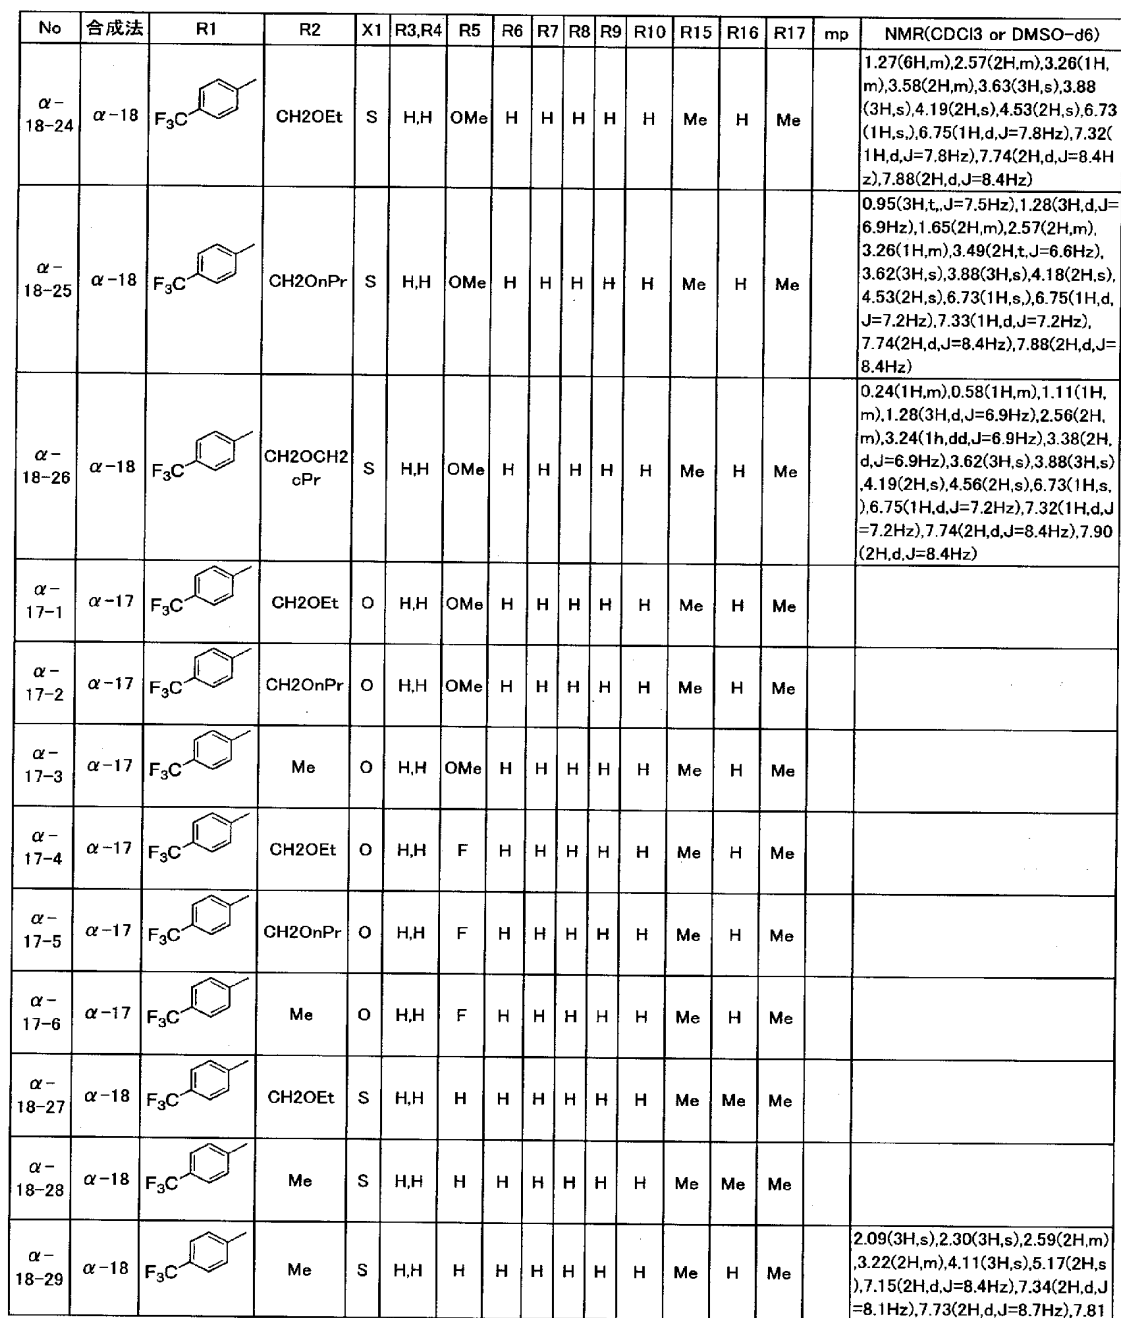 No 合成法 R1 R2 X1 R3,R4 R5 R6 R7 R8 R9 R10 R15 R16 R17 mp NMR(CDCl3 or DMSO-d6)
α-18-24 α-18 F3C CH2OEt S H,H OMe H H H H H Me H Me
1.27(6H,m),2.57(2H,m),3.26(1H,
m),3.58(2H,m),3.63(3H,s),3.88
(3H,s),4.19(2H,s),4.53(2H,s),6.73
(1H,s,),6.75(1H,d,J=7.8Hz),7.32(
1H,d,J=7.8Hz),7.74(2H,d,J=8.4H
z),7.88(2H,d,J=8.4Hz)
α-18-25 α-18 F3C CH2OnPr S H,H OMe H H H H H Me H Me
0.95(3H,t,,J=7.5Hz),1.28(3H,d,J=
6.9Hz),1.65(2H,m),2.57(2H,m),
3.26(1H,m),3.49(2H,t,J=6.6Hz),
3.62(3H,s),3.88(3H,s),4.18(2H,s),
4.53(2H,s),6.73(1H,s,),6.75(1H,d,
J=7.2Hz),7.33(1H,d,J=7.2Hz),
7.74(2H,d,J=8.4Hz),7.88(2H,d,J=
8.4Hz)
α-18-26 α-18 F3C CH2OCH2cPr S H,H OMe H H H H H Me H Me
0.24(1H,m),0.58(1H,m),1.11(1H,
m),1.28(3H,d,J=6.9Hz),2.56(2H,
m),3.24(1h,dd,J=6.9Hz),3.38(2H,
d,J=6.9Hz),3.62(3H,s),3.88(3H,s)
,4.19(2H,s),4.56(2H,s),6.73(1H,s,
),6.75(1H,d,J=7.2Hz),7.32(1H,d,J
=7.2Hz),7.74(2H,d,J=8.4Hz),7.90
(2H,d,J=8.4Hz)
α-17-1 α-17 F3C CH2OEt O H,H OMe H H H H H Me H Me
α-17-2 α-17 F3C CH2OnPr O H,H OMe H H H H H Me H Me
α-17-3 α-17 F3C Me O H,H OMe H H H H H Me H Me
α-17-4 α-17 F3C CH2OEt O H,H F H H H H H Me H Me
α-17-5 α-17 F3C CH2OnPr O H,H F H H H H H Me H Me
α-17-6 α-17 F3C Me O H,H F H H H H H Me H Me
α-18-27 α-18 F3C CH2OEt S H,H H H H H H H Me Me Me
α-18-28 α-18 F3C Me S H,H H H H H H H Me Me Me
α-18-29 α-18 F3C Me S H,H H H H H H H Me H Me
2.09(3H,s),2.30(3H,s),2.59(2H,m)
,3.22(2H,m),4.11(3H,s),5.17(2H,s
),7.15(2H,d,J=8.4Hz),7.34(2H,d,J
=8.1Hz),7.73(2H,d,J=8.7Hz),7.81